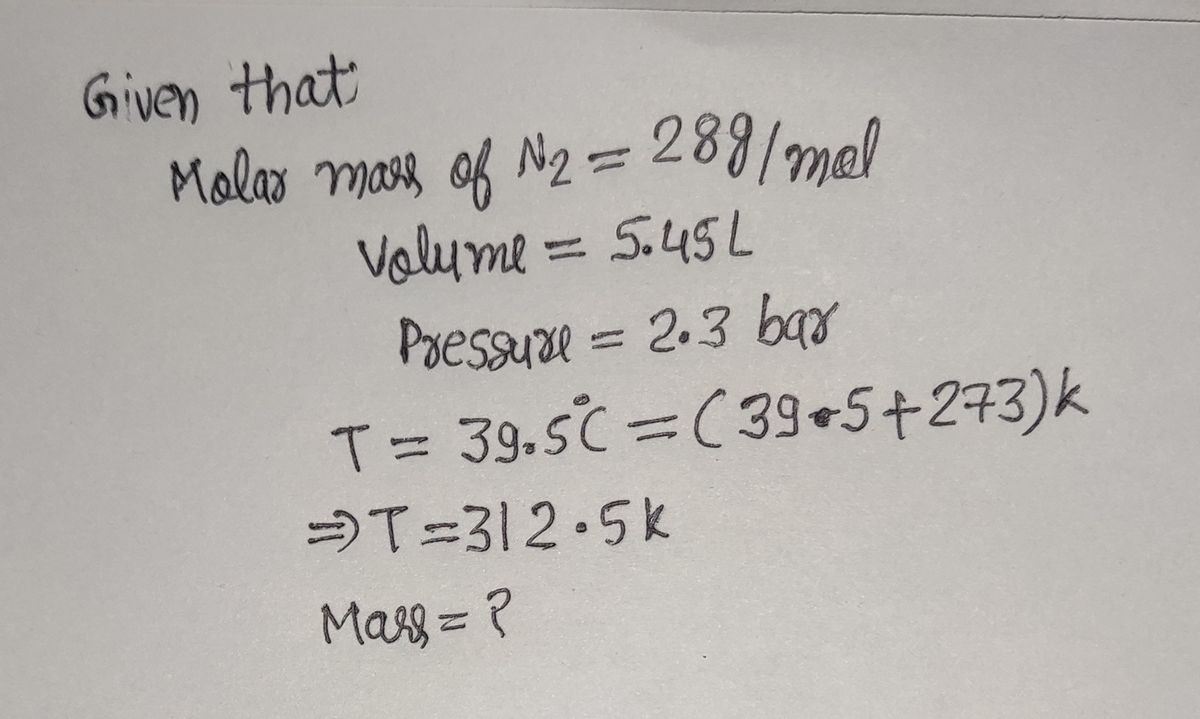 Given that:
Molar mass of N2 = 28g/mol
Volume = 5.45L
Pressure = 2.3 bar
T = 39.5°C = (39.5+273)k
⇒T=312.5k
Mass = ?